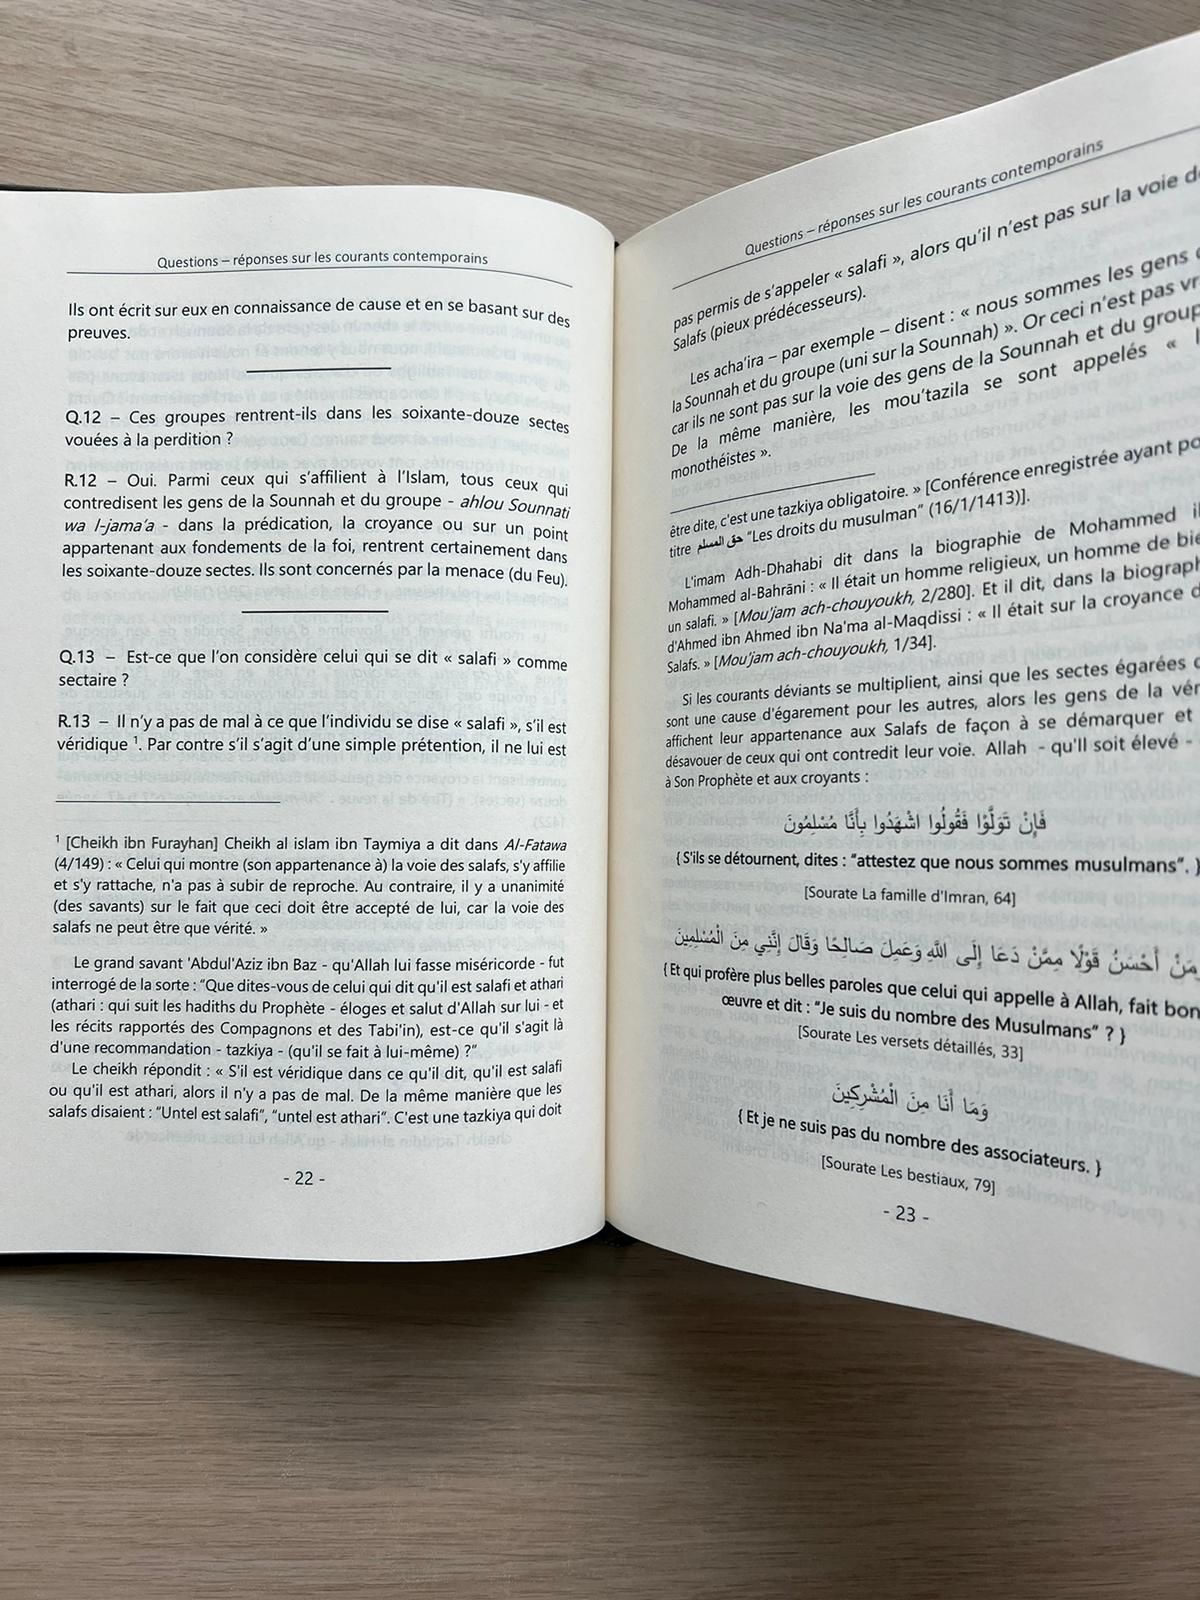 Questions – réponses sur les courants contemporains
Ils ont écrit sur eux en connaissance de cause et en se basant sur des
preuves.
Q.12 – Ces groupes rentrent-ils dans les soixante-douze sectes
vouées à la perdition ?
R.12 – Oui. Parmi ceux qui s’affilient à l’Islam, tous ceux qui
contredisent les gens de la Sounnah et du groupe - ahlou Sounnati
wa l-jama’a - dans la prédication, la croyance ou sur un point
appartenant aux fondements de la foi, rentrent certainement dans
les soixante-douze sectes. Ils sont concernés par la menace (du Feu).
Q.13 – Est-ce que l’on considère celui qui se dit « salafi » comme
sectaire ?
R.13 – Il n’y a pas de mal à ce que l’individu se dise « salafi », s’il est
véridique ¹. Par contre s’il s’agit d’une simple prétention, il ne lui est
¹ [Cheikh ibn Furayhan] Cheikh al islam ibn Taymiya a dit dans Al-Fatawa
(4/149) : « Celui qui montre (son appartenance à) la voie des salafs, s'y affilie
et s'y rattache, n'a pas à subir de reproche. Au contraire, il y a unanimité
(des savants) sur le fait que ceci doit être accepté de lui, car la voie des
salafs ne peut être que vérité. »
Le grand savant 'Abdul'Aziz ibn Baz - qu'Allah lui fasse miséricorde - fut
interrogé de la sorte : “Que dites-vous de celui qui dit qu'il est salafi et athari
(athari : qui suit les hadiths du Prophète - éloges et salut d'Allah sur lui - et
les récits rapportés des Compagnons et des Tabi'in), est-ce qu'il s'agit là
d'une recommandation - tazkiya - (qu'il se fait à lui-même) ?”
Le cheikh répondit : « S'il est véridique dans ce qu'il dit, qu'il est salafi
ou qu'il est athari, alors il n'y a pas de mal. De la même manière que les
salafs disaient : “Untel est salafi”, “untel est athari”. C'est une tazkiya qui doit
- 22 -
Questions – réponses sur les courants contemporains
pas permis de s’appeler « salafi », alors qu’il n’est pas sur la voie
Salafs (pieux prédécesseurs).
Les acha’ira – par exemple – disent : « nous sommes les gens
la Sounnah et du groupe (uni sur la Sounnah) ». Or ceci n’est pas
car ils ne sont pas sur la voie des gens de la Sounnah et du
De la même manière, les mou’tazila se sont appelés «
monothéistes ».
être dite, c'est une tazkiya obligatoire. » [Conférence enregistrée ayant
titre حق المسلم “Les droits du musulman” (16/1/1413)].
L'imam Adh-Dhahabi dit dans la biographie de Mohammed
Mohammed al-Bahrāni : « Il était un homme religieux, un homme de
un salafi. » [Mou'jam ach-chouyoukh, 2/280]. Et il dit, dans la
d'Ahmed ibn Ahmed ibn Na'ma al-Maqdissi : « Il était sur la croyance
Salafs. » [Mou'jam ach-chouyoukh, 1/34].
Si les courants déviants se multiplient, ainsi que les sectes égarées
sont une cause d'égarement pour les autres, alors les gens de la
affichent leur appartenance aux Salafs de façon à se démarquer et
désavouer de ceux qui ont contredit leur voie. Allah - qu'Il soit élevé -
à Son Prophète et aux croyants :
فَإِنْ تَوَلَّوْا فَقُولُوا اشْهَدُوا بِأَنَّا مُسْلِمُونَ
{ S'ils se détournent, dites : “attestez que nous sommes musulmans”. }
[Sourate La famille d'Imran, 64]
أَحْسَنُ قَوْلًا مِمَّنْ دَعَا إِلَى اللَّهِ وَعَمِلَ صَالِحًا وَقَالَ إِنَّنِي مِنَ الْمُسْلِمِينَ
{ Et qui profère plus belles paroles que celui qui appelle à Allah, fait
œuvre et dit : “Je suis du nombre des Musulmans” ? }
[Sourate Les versets détaillés, 33]
وَمَا أَنَا مِنَ الْمُشْرِكِينَ
{ Et je ne suis pas du nombre des associateurs. }
[Sourate Les bestiaux, 79]
- 23 -